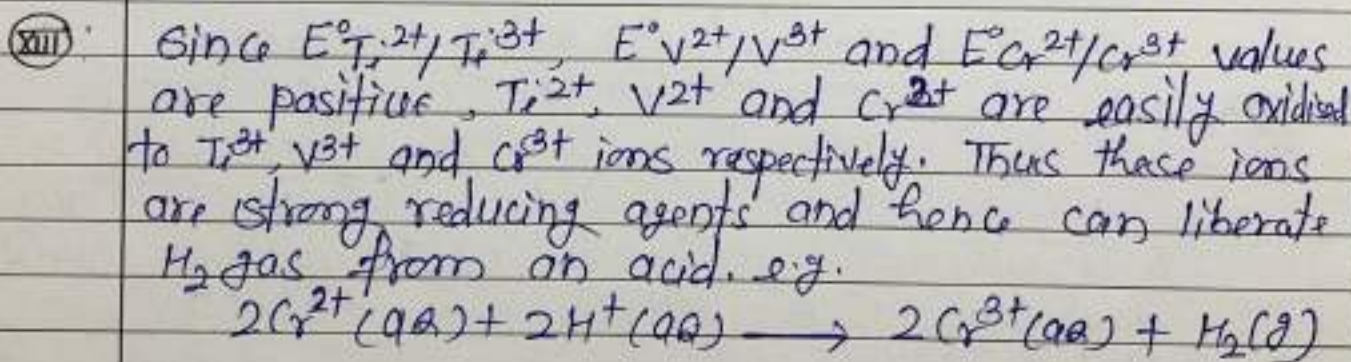 XIII Since E°Ti²⁺/Ti³⁺, E°V²⁺/V³⁺ and E°Cr²⁺/Cr³⁺ values
are positive, Ti²⁺, V²⁺ and Cr²⁺ are easily oxidised
to Ti³⁺, V³⁺ and Cr³⁺ ions respectively. Thus these ions
are strong reducing agents and hence can liberate
H₂ gas from an acid. e.g.
2Cr²⁺(aq) + 2H⁺(aq) ⟶ 2Cr³⁺(aq) + H₂(g)